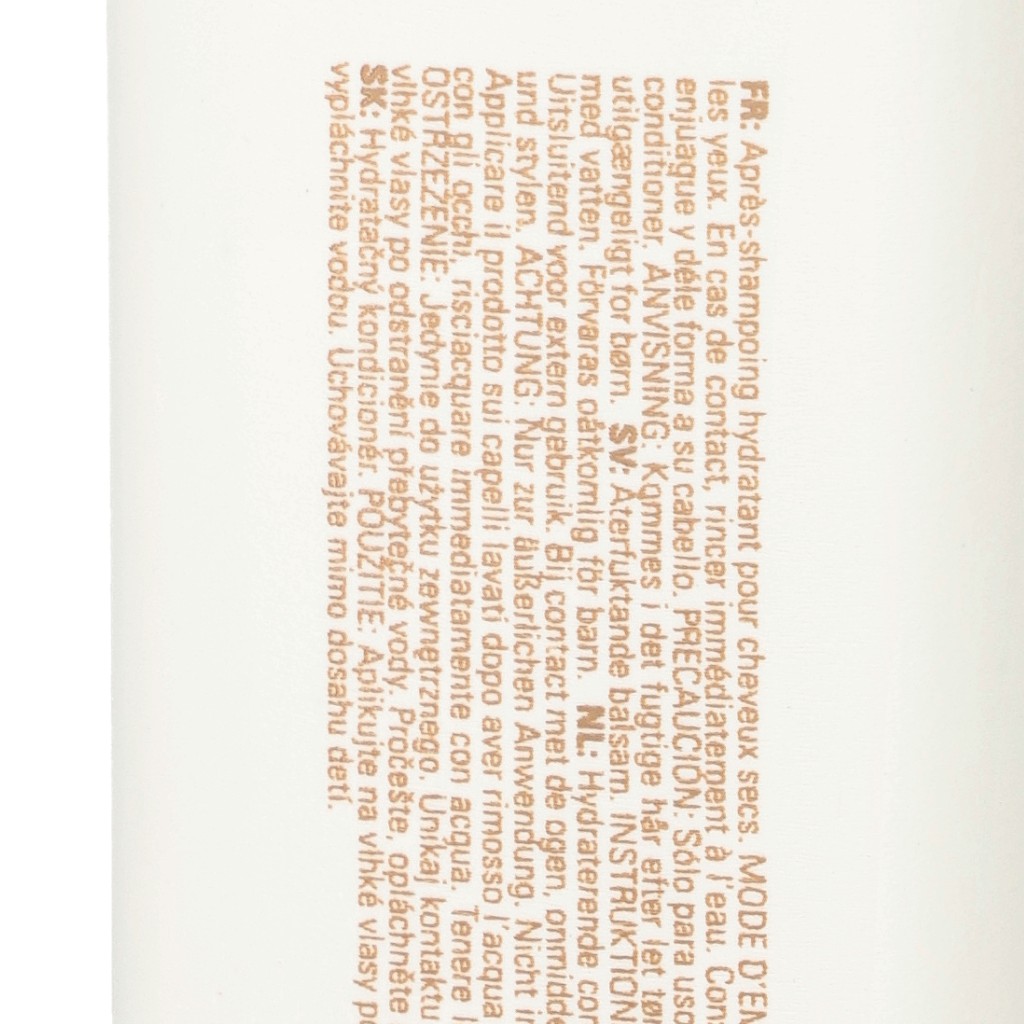 FR: Après-shampoing hydratant pour cheveux secs. MODE D'EM
les yeux. En cas de contact, rincer immédiatement à l'eau. Cons
enjuague y déle forma a su cabello. PRECAUCIÓN: Sólo para uso
conditioner. ANVISNING: Kæmmes i det fugtige hår efter let tør
utilgængeligt for børn. SV: Återfuktande balsam. INSTRUKTION
med vatten. Förvaras oåtkomlig för barn. NL: Hydraterende con
Uitsluitend voor extern gebruik. Bij contact met de ogen, onmidde
und stylen. ACHTUNG: Nur zur äußerlichen Anwendung. Nicht in
Applicare il prodotto sui capelli lavati dopo aver rimosso l'acqua
con gli occhi, risciacquare immediatamente con acqua. Tenere l
OSTRZEŻENIE: Jedynie do użytku zewnętrznego. Unikaj kontaktu
vlhké vlasy po odstranění přebytečné vody. Pročešte, opláchněte
SK: Hydratačný kondicionér. POUŽITIE: Aplikujte na vlhké vlasy po
vypláchnite vodou. Uchovávajte mimo dosahu detí.